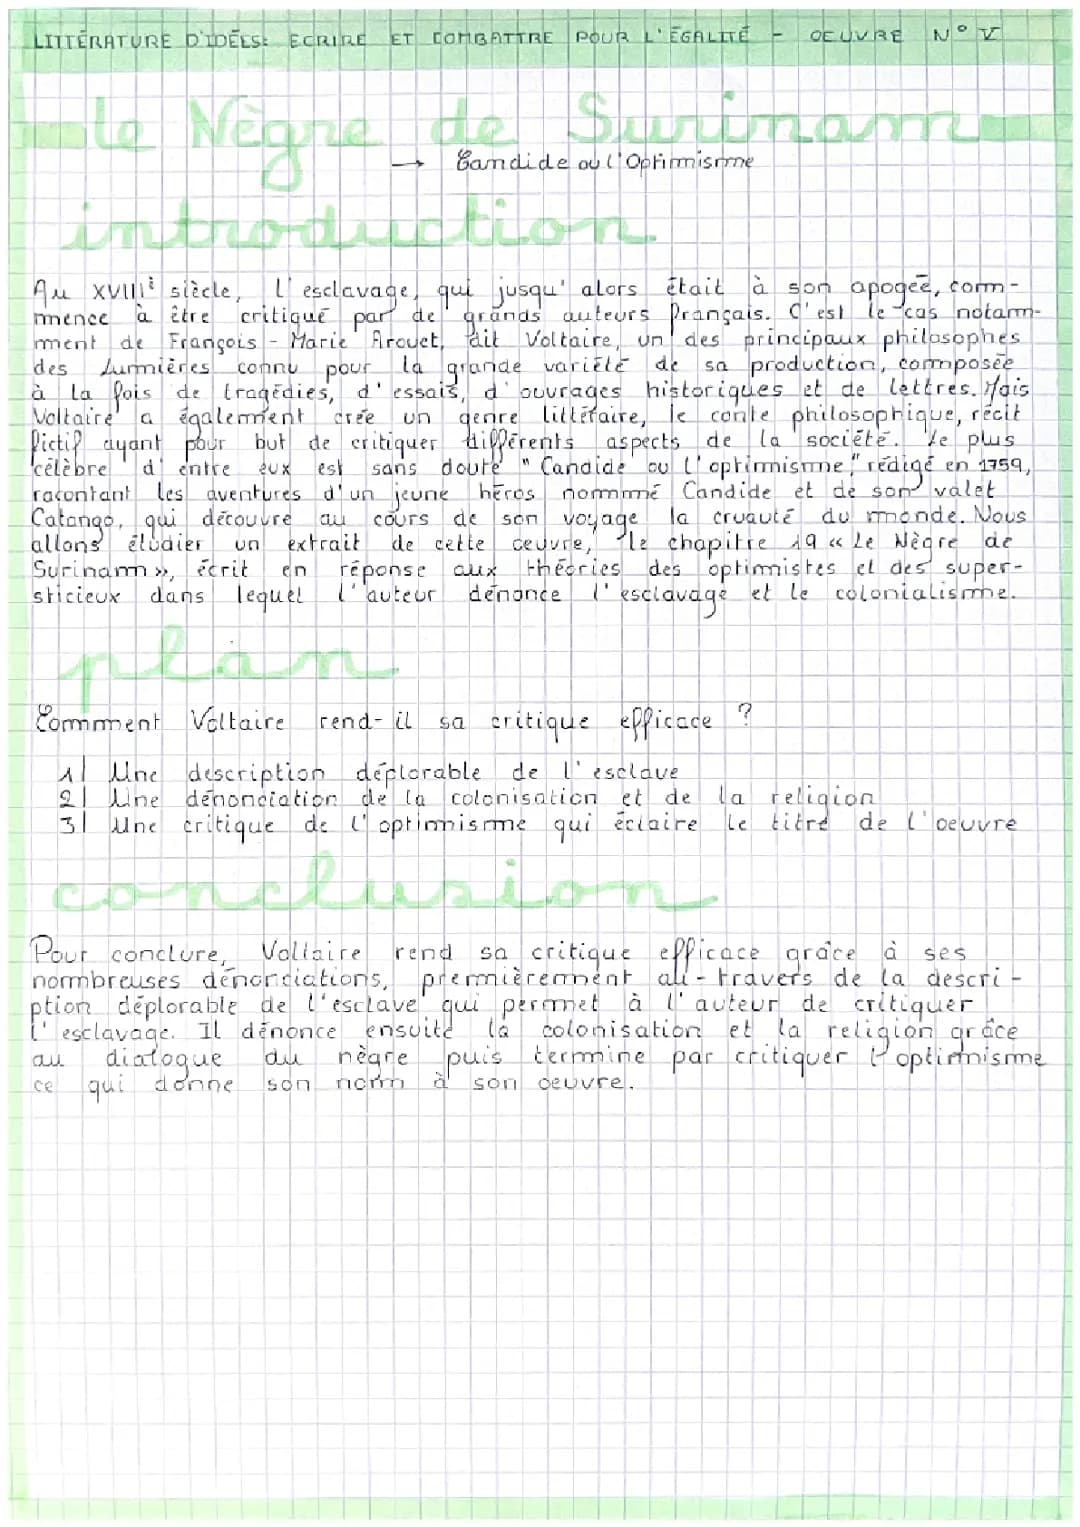 LITTÉRATURE D'IDÉES: ECRIRE ET COMBATTRE POUR L'ÉGALITÉ - OEUVRE N° V
le Nègre de Surinam
→ Candide ou l'Optimisme
introduction
Au XVIIIè siècle, l'esclavage, qui jusqu'alors était à son apogée, com-
mence à être critiqué par de grands auteurs français. C'est le cas notam-
ment de François - Marie Arouet, dit Voltaire, un des principaux philosophes
des Lumières connu pour la grande variété de sa production, composée
à la fois de tragédies, d'essais, d'ouvrages historiques et de lettres. Mais
Voltaire a également crée un genre littéraire, le conte philosophique, récit
fictif ayant pour but de critiquer différents aspects de la société. Le plus
célèbre d'entre eux est sans doute "Candide ou l'optimisme", rédigé en 1759,
racontant les aventures d'un jeune héros nommé Candide et de son valet
Catango, qui découvre au cours de son voyage la cruauté du monde. Nous
allons étudier un extrait de cette oeuvre, le chapitre 19 « Le Nègre de
Surinam », écrit en réponse aux théories des optimistes et des super-
sticieux dans lequel l'auteur dénonce l'esclavage et le colonialisme.
plan
Comment Voltaire rend-il sa critique efficace ?
1| Une description déplorable de l'esclave
2| Une dénonciation de la colonisation et de la religion
3| Une critique de l'optimisme qui éclaire le titre de l'oeuvre
conclusion
Pour conclure, Voltaire rend sa critique efficace grâce à ses
nombreuses dénonciations, premièrement au-travers de la descri-
ption déplorable de l'esclave qui permet à l'auteur de critiquer
l'esclavage. Il dénonce ensuite la colonisation et la religion grâce
au dialogue du nègre puis termine par critiquer l'optimisme
ce qui donne son nom à son oeuvre.